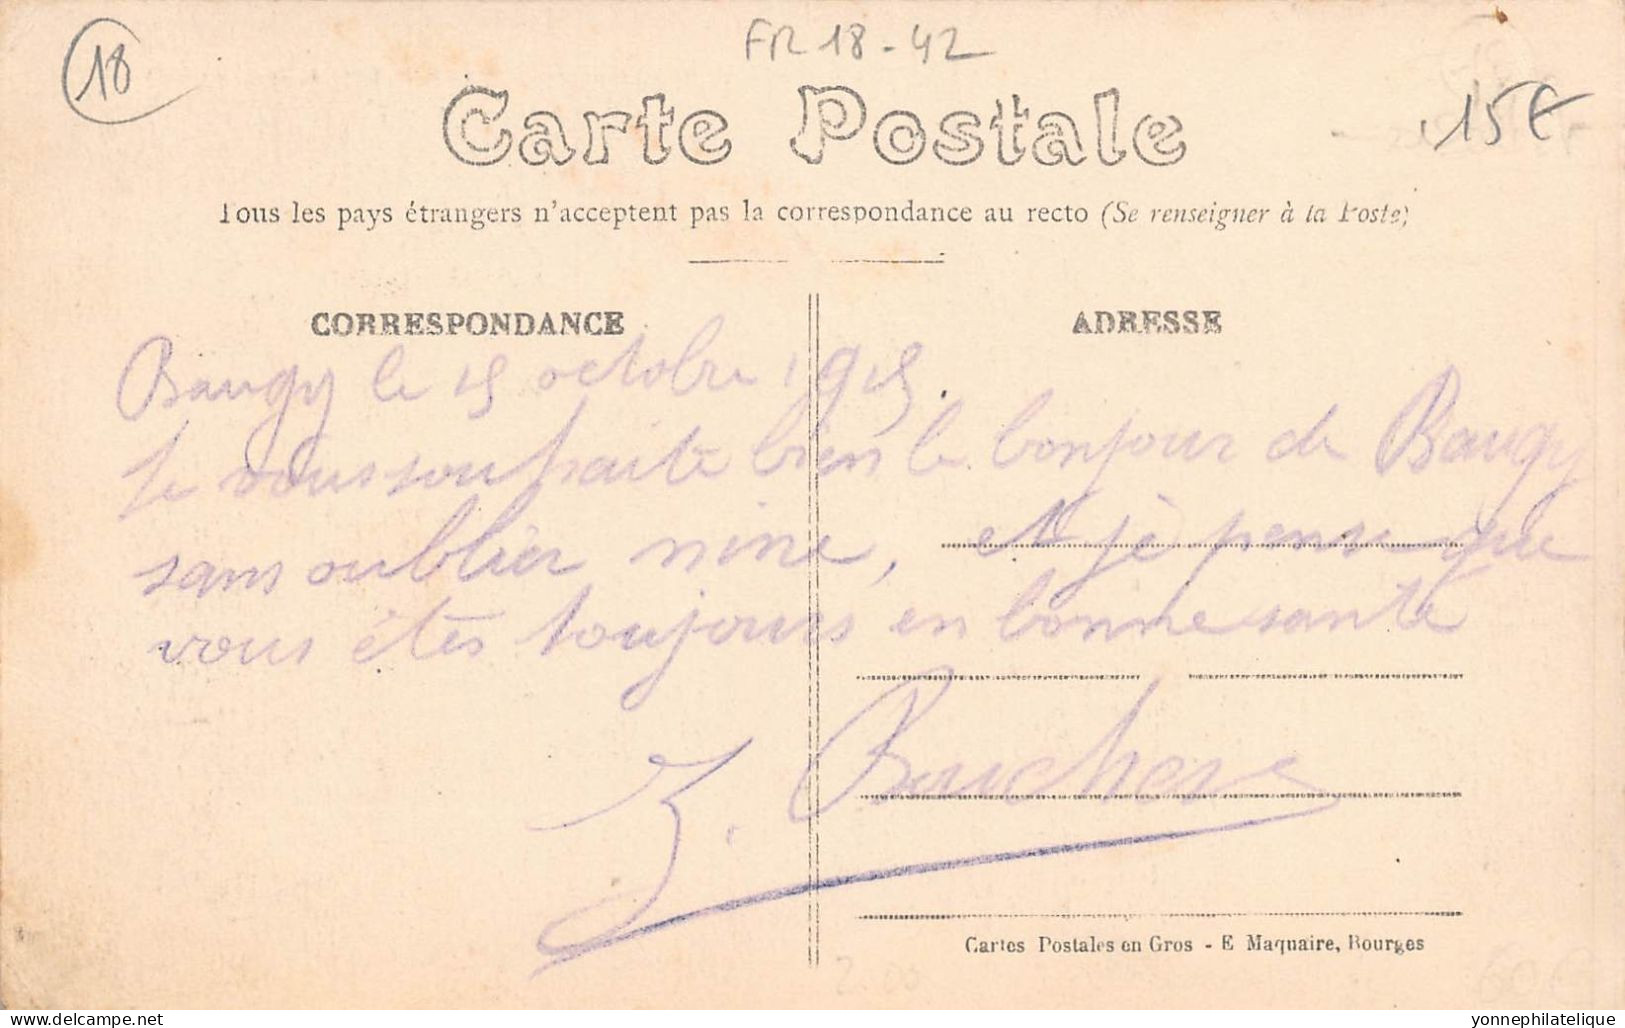 18
FR 18-42
15€
Carte Postale
Tous les pays étrangers n'acceptent pas la correspondance au recto (Se renseigner à la Poste)
CORRESPONDANCE
ADRESSE
Baugy le 15 octobre 1915.
Je vous souhaite bien le bonjour de Baugy
sans oublier nine, et je pense que
vous êtes toujours en bonne santé
Cartes Postales en Gros - E Maquaire, Bourges
2.00
60€
yonnephilatelique
delcampe.net